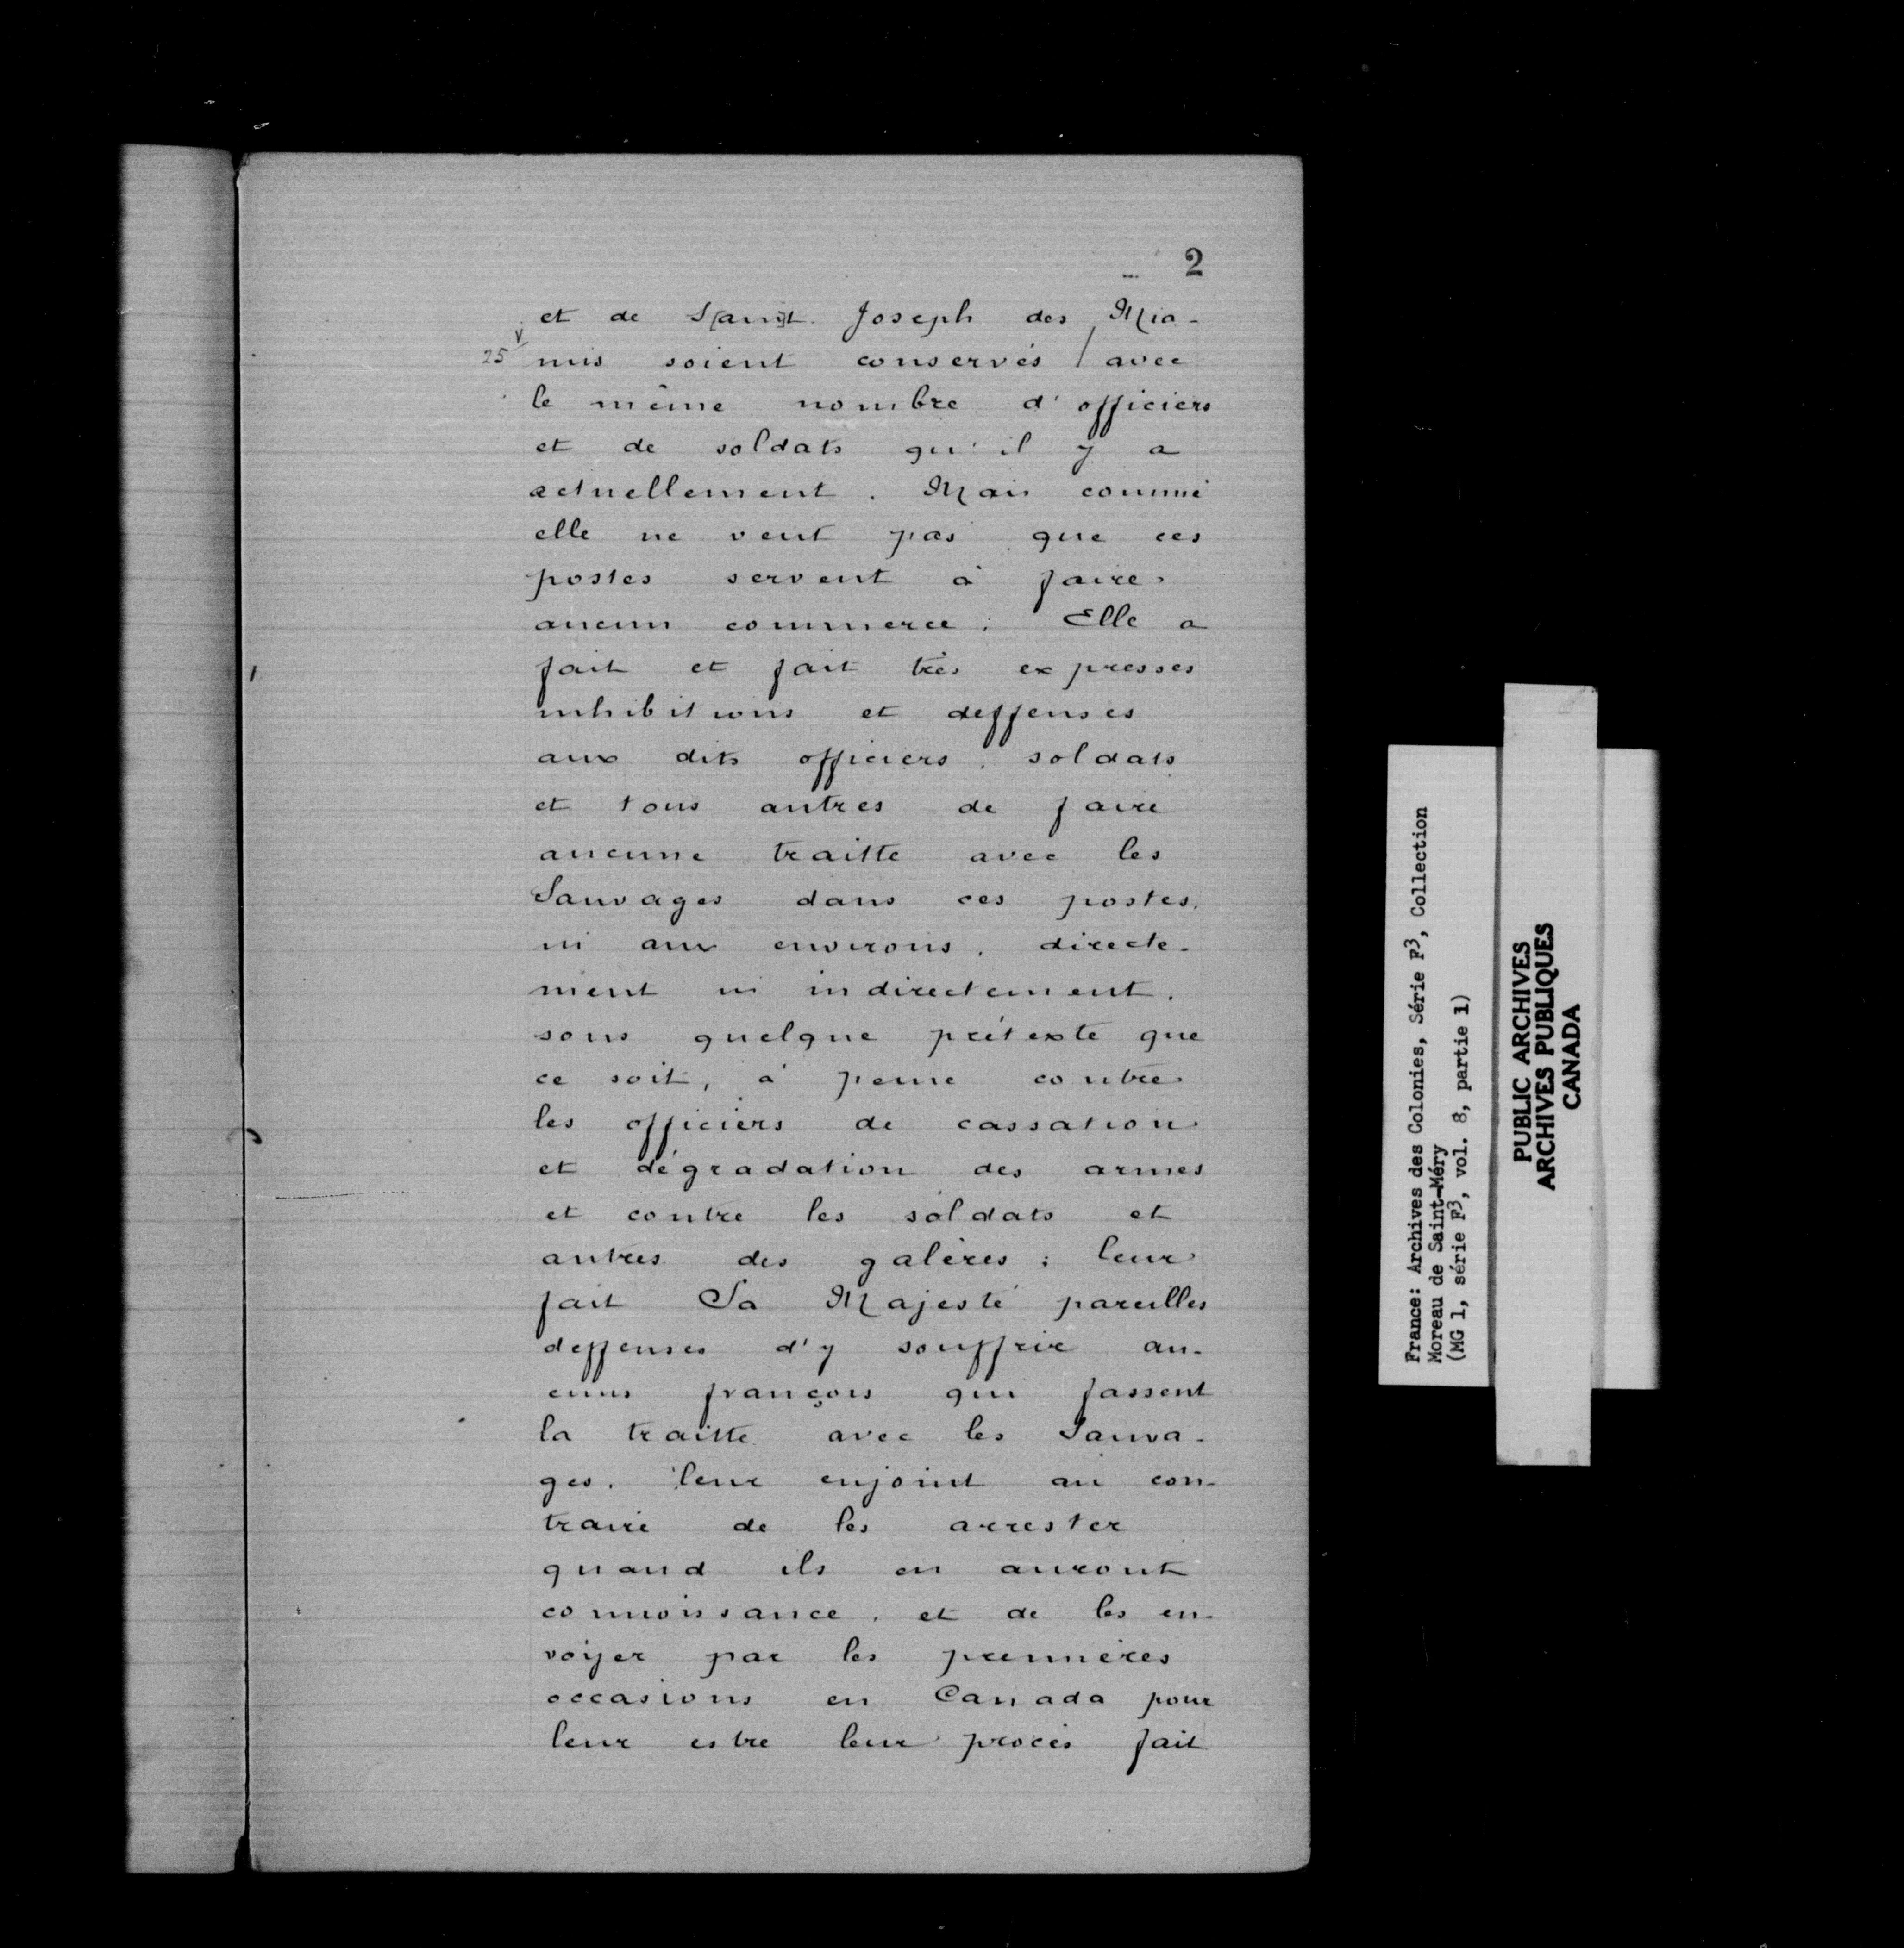 2
et de S[ain]t Joseph des Mia-
25 v mis soient conservés / avec
le même nombre d'officiers
et de soldats qu'il y a
actuellement. Mais comme
elle ne veut pas que ces
postes servent à faire
aucun commerce. Elle a
fait et fait très expresses
inhibitions et deffenses
aux dits officiers, soldats
et tous autres de faire
aucune traitte avec les
Sauvages dans ces postes,
ni aux environs, directe-
ment ni indirectement,
sous quelque prétexte que
ce soit, à peine contre
les officiers de cassation
et dégradation des armes
et contre les soldats et
autres des galères; leur
fait Sa Majesté pareilles
deffenses d'y souffrir au-
cuns françois qui fassent
la traitte avec les Sauva-
ges. leur enjoint au con-
traire de les arrester
quand ils en auront
connoissance, et de les en-
voyer par les premières
occasions en Canada pour
leur estre leur procès fait
France: Archives des Colonies, Série F3, Collection
Moreau de Saint-Méry
(MG 1, série F3, vol. 8, partie 1)
PUBLIC ARCHIVES
ARCHIVES PUBLIQUES
CANADA